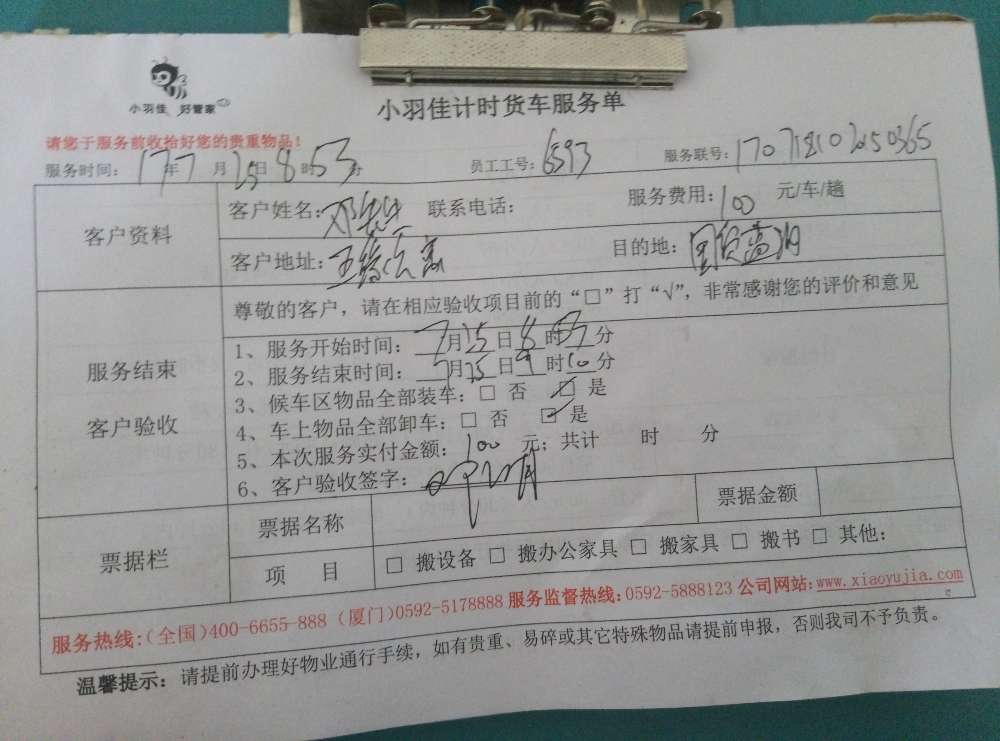 小羽佳 好管家
小羽佳计时货车服务单
请您于服务前收拾好您的贵重物品!
服务时间: 17年 7月 25日 8时 53分 员工工号: 6593 服务联号:
客户资料
客户姓名: 邓 联系电话: 服务费用: 100 元/车/趟
客户地址: 五缘 目的地: 国贸蓝湖
尊敬的客户,请在相应验收项目前的“□”打“√”,非常感谢您的评价和意见
服务结束
客户验收
1、服务开始时间: 7月25日8时53分
2、服务结束时间: 7月25日9时10分
3、候车区物品全部装车: □ 否 ☑ 是
4、车上物品全部卸车: □ 否 ☑ 是
5、本次服务实付金额: 100 元; 共计 时 分
6、客户验收签字:
票据栏
票据名称 票据金额
项 目 □ 搬设备 □ 搬办公家具 □ 搬家具 □ 搬书 □ 其他:
服务热线:(全国)400-6655-888 (厦门)0592-5178888 服务监督热线:0592-5888123 公司网站:www.xiaoyujia.com
温馨提示: 请提前办理好物业通行手续,如有贵重、易碎或其它特殊物品请提前申报,否则我司不予负责。